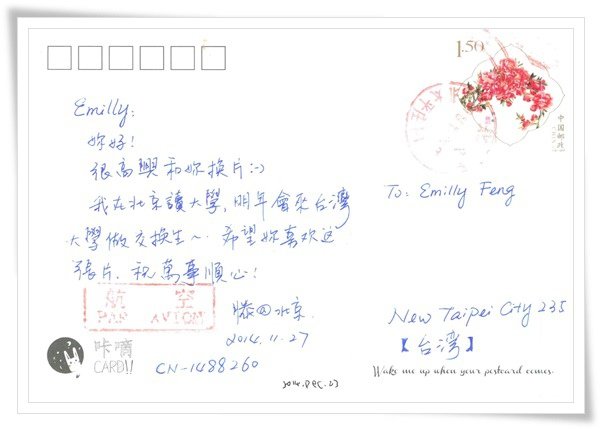 1.50
中国邮政
Emilly:
妳好!
很高興和妳換片:-)
我在北京讀大學,明年會來台灣
大學做交換生~ 希望妳喜欢这
張片. 祝萬事順心!
航 空
PAR AVION
@北京
2014.11.27
咔嘀
CARD!!
CN-1488260
2014.DEC.23
To: Emilly Feng
New Taipei City 235
【台湾】
Wake me up when your postcard comes.